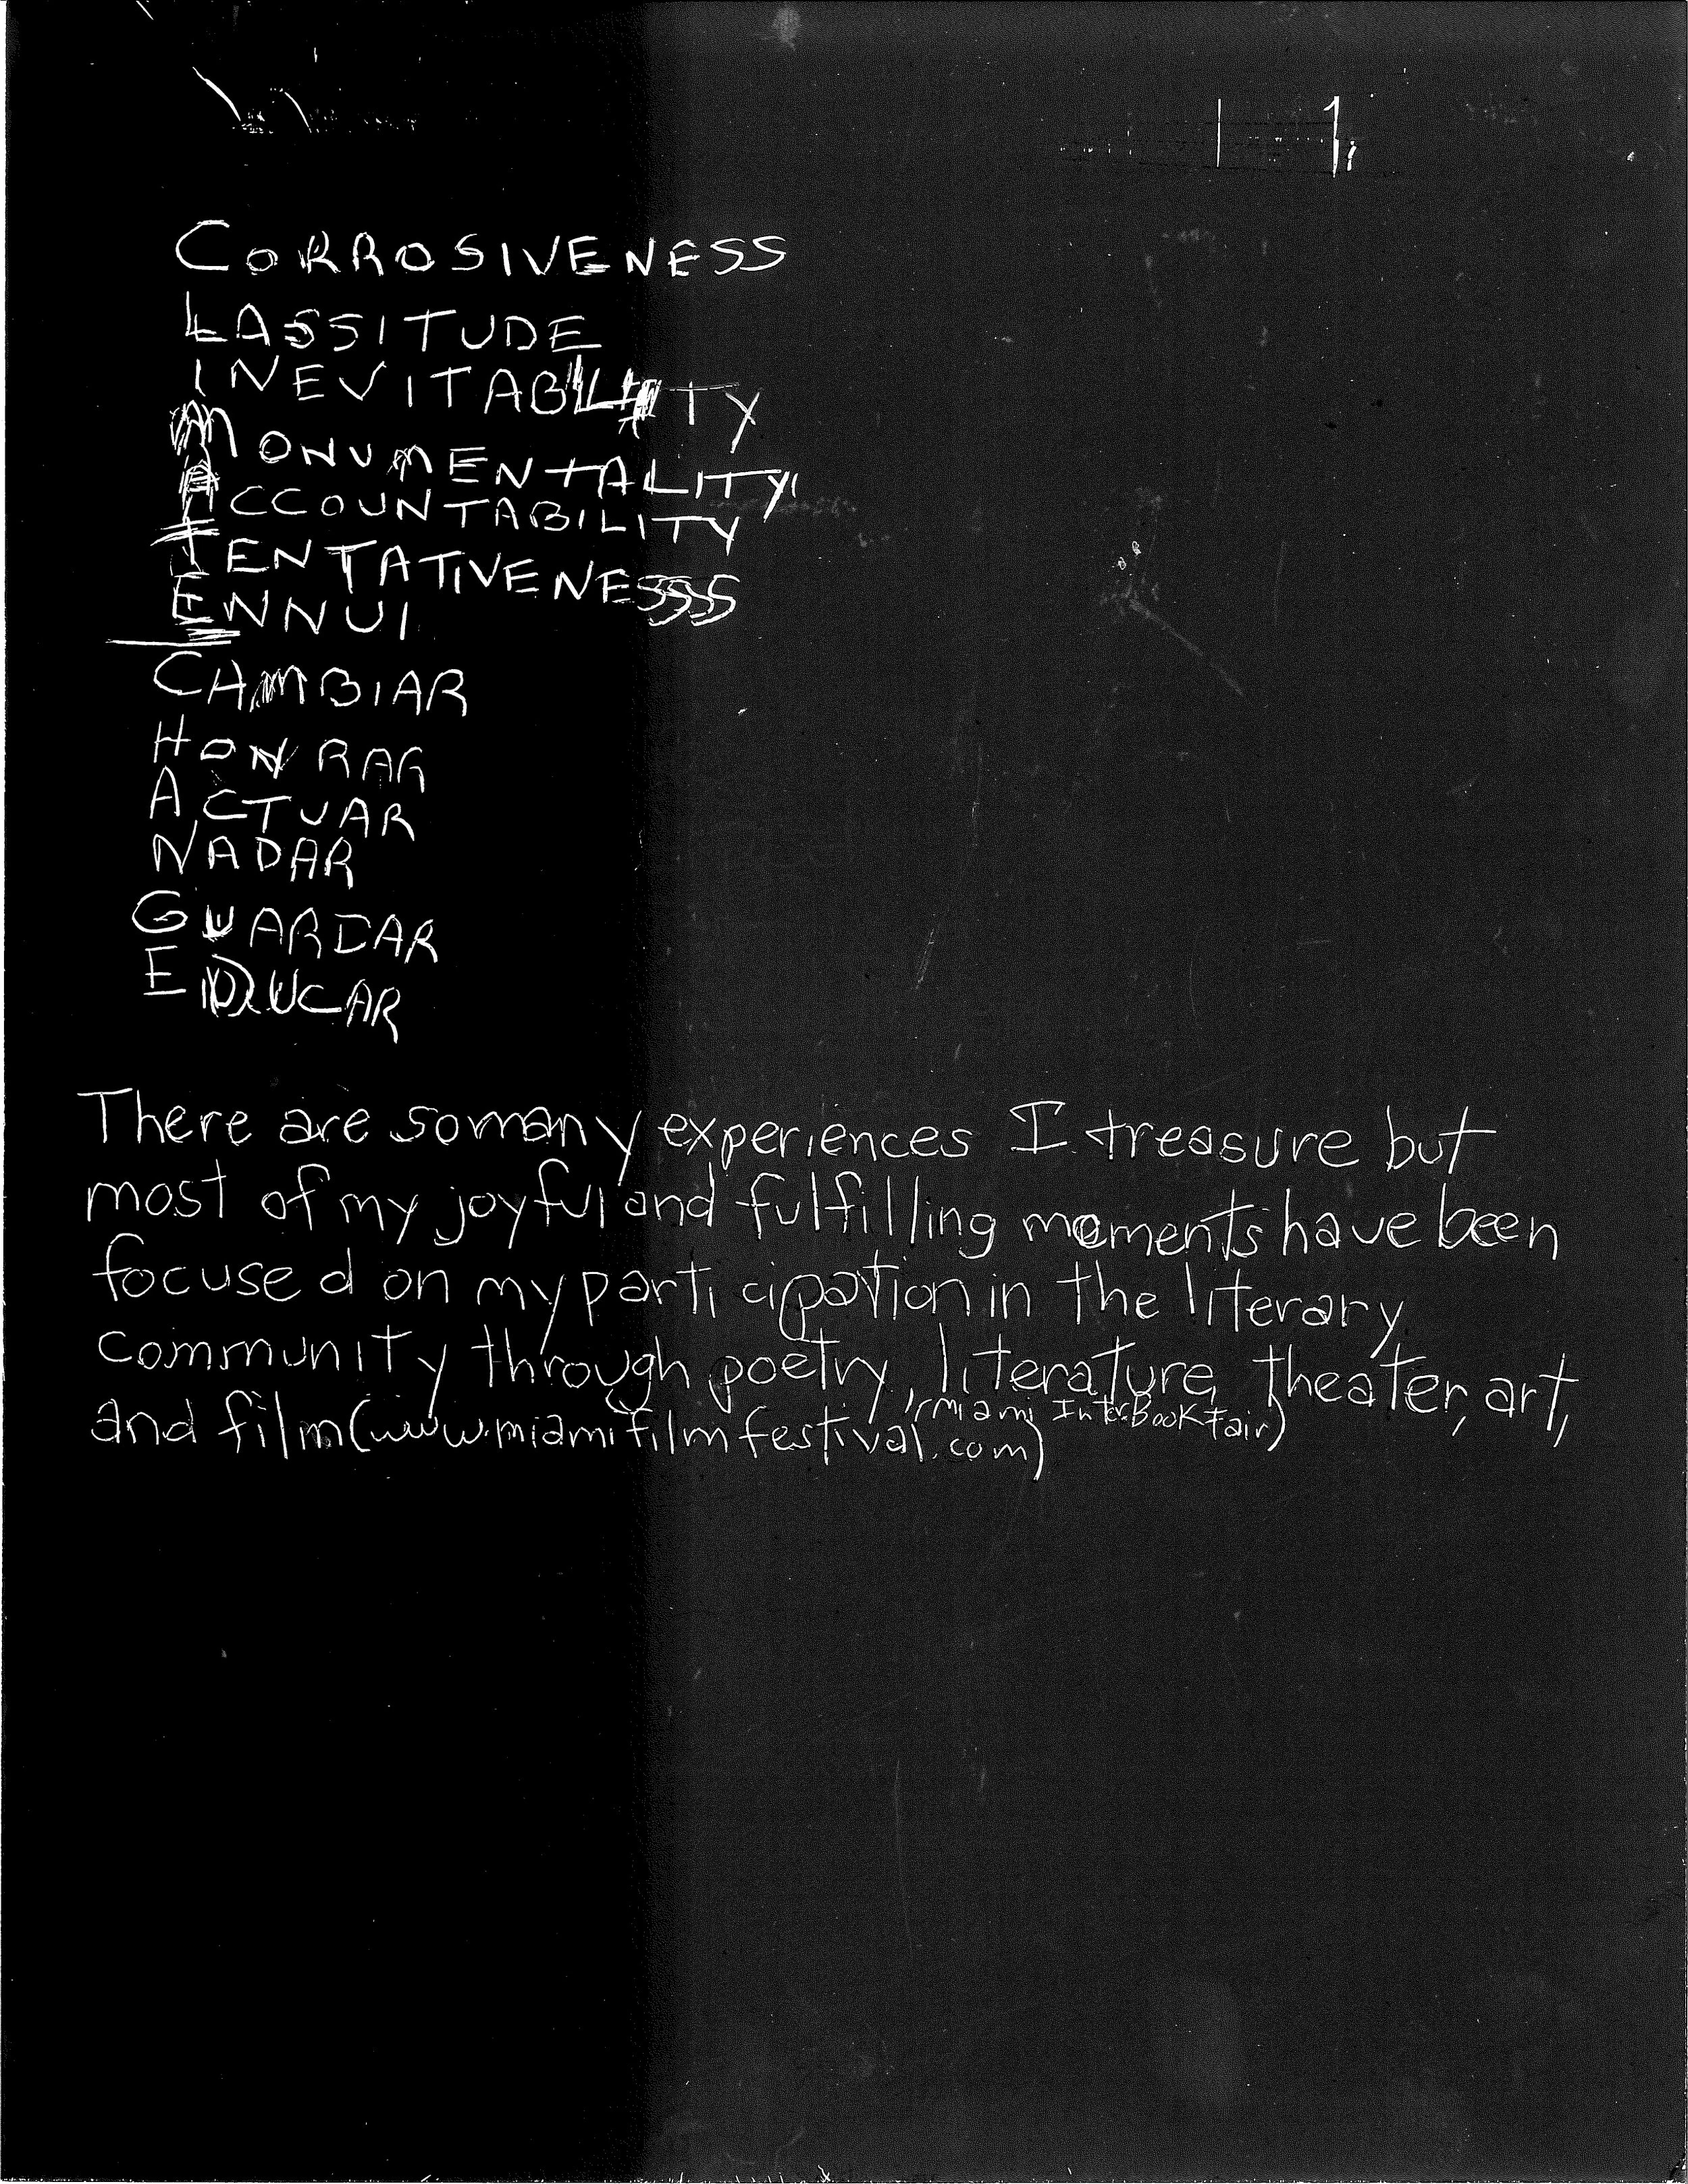 CORROSIVENESS
LASSITUDE
INEVITABILITY
MONUMENTALITY
ACCOUNTABILITY
TENTATIVENESS
ENNUI
CAMBIAR
HONRAR
ACTUAR
NADAR
GUARDAR
EDUCAR
There are so many experiences I treasure but
most of my joyful and fulfilling moments have been
focused on my participation in the literary
community through poetry, literature, theater, art,
(Miami Inter Book Fair)
and film (www.miamifilmfestival.com)